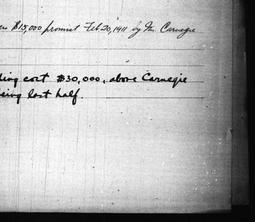 $15,000 promised Feb 20, 1911 by Mr. Carnegie
ding cost $30,000, above Carnegie
eing last half.